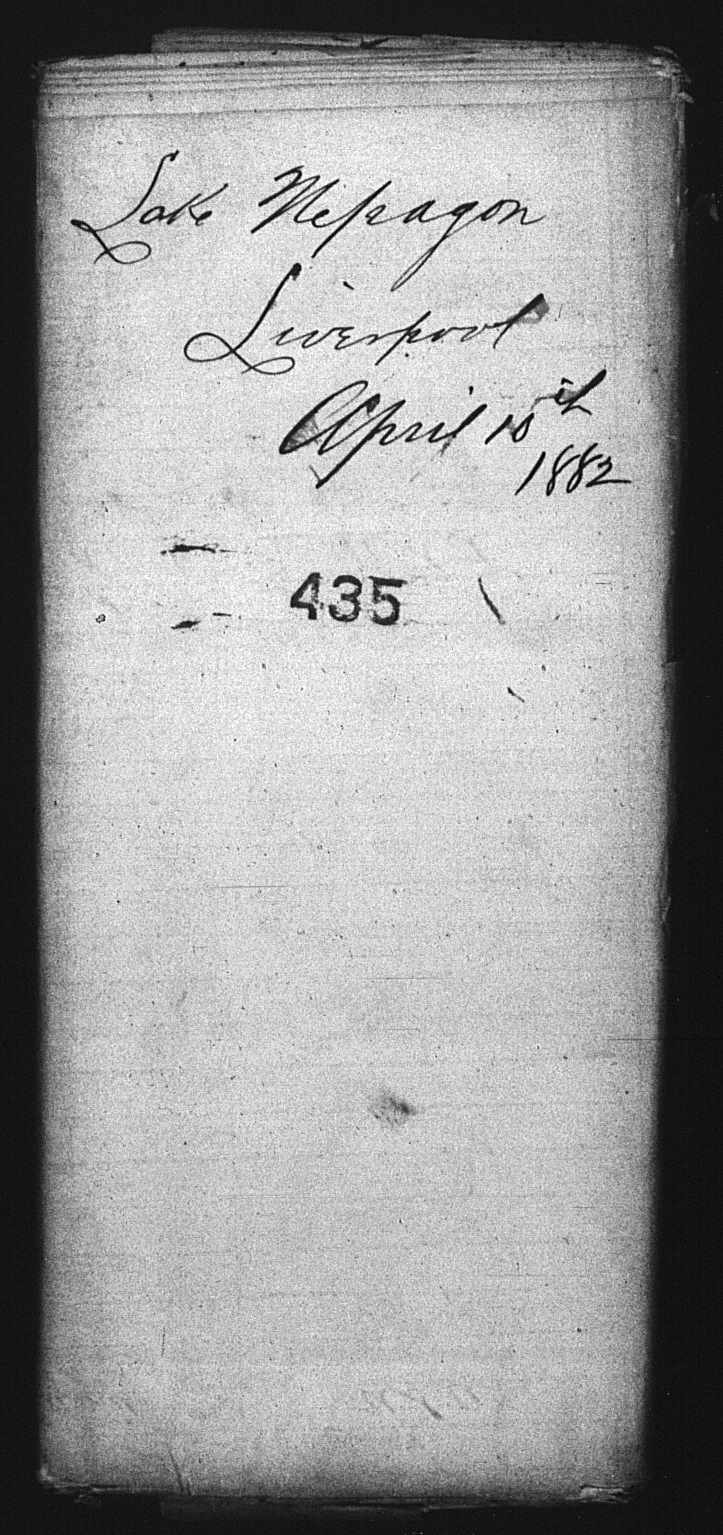 Lake Nepagon
Liverpool
April 10th
1882
435